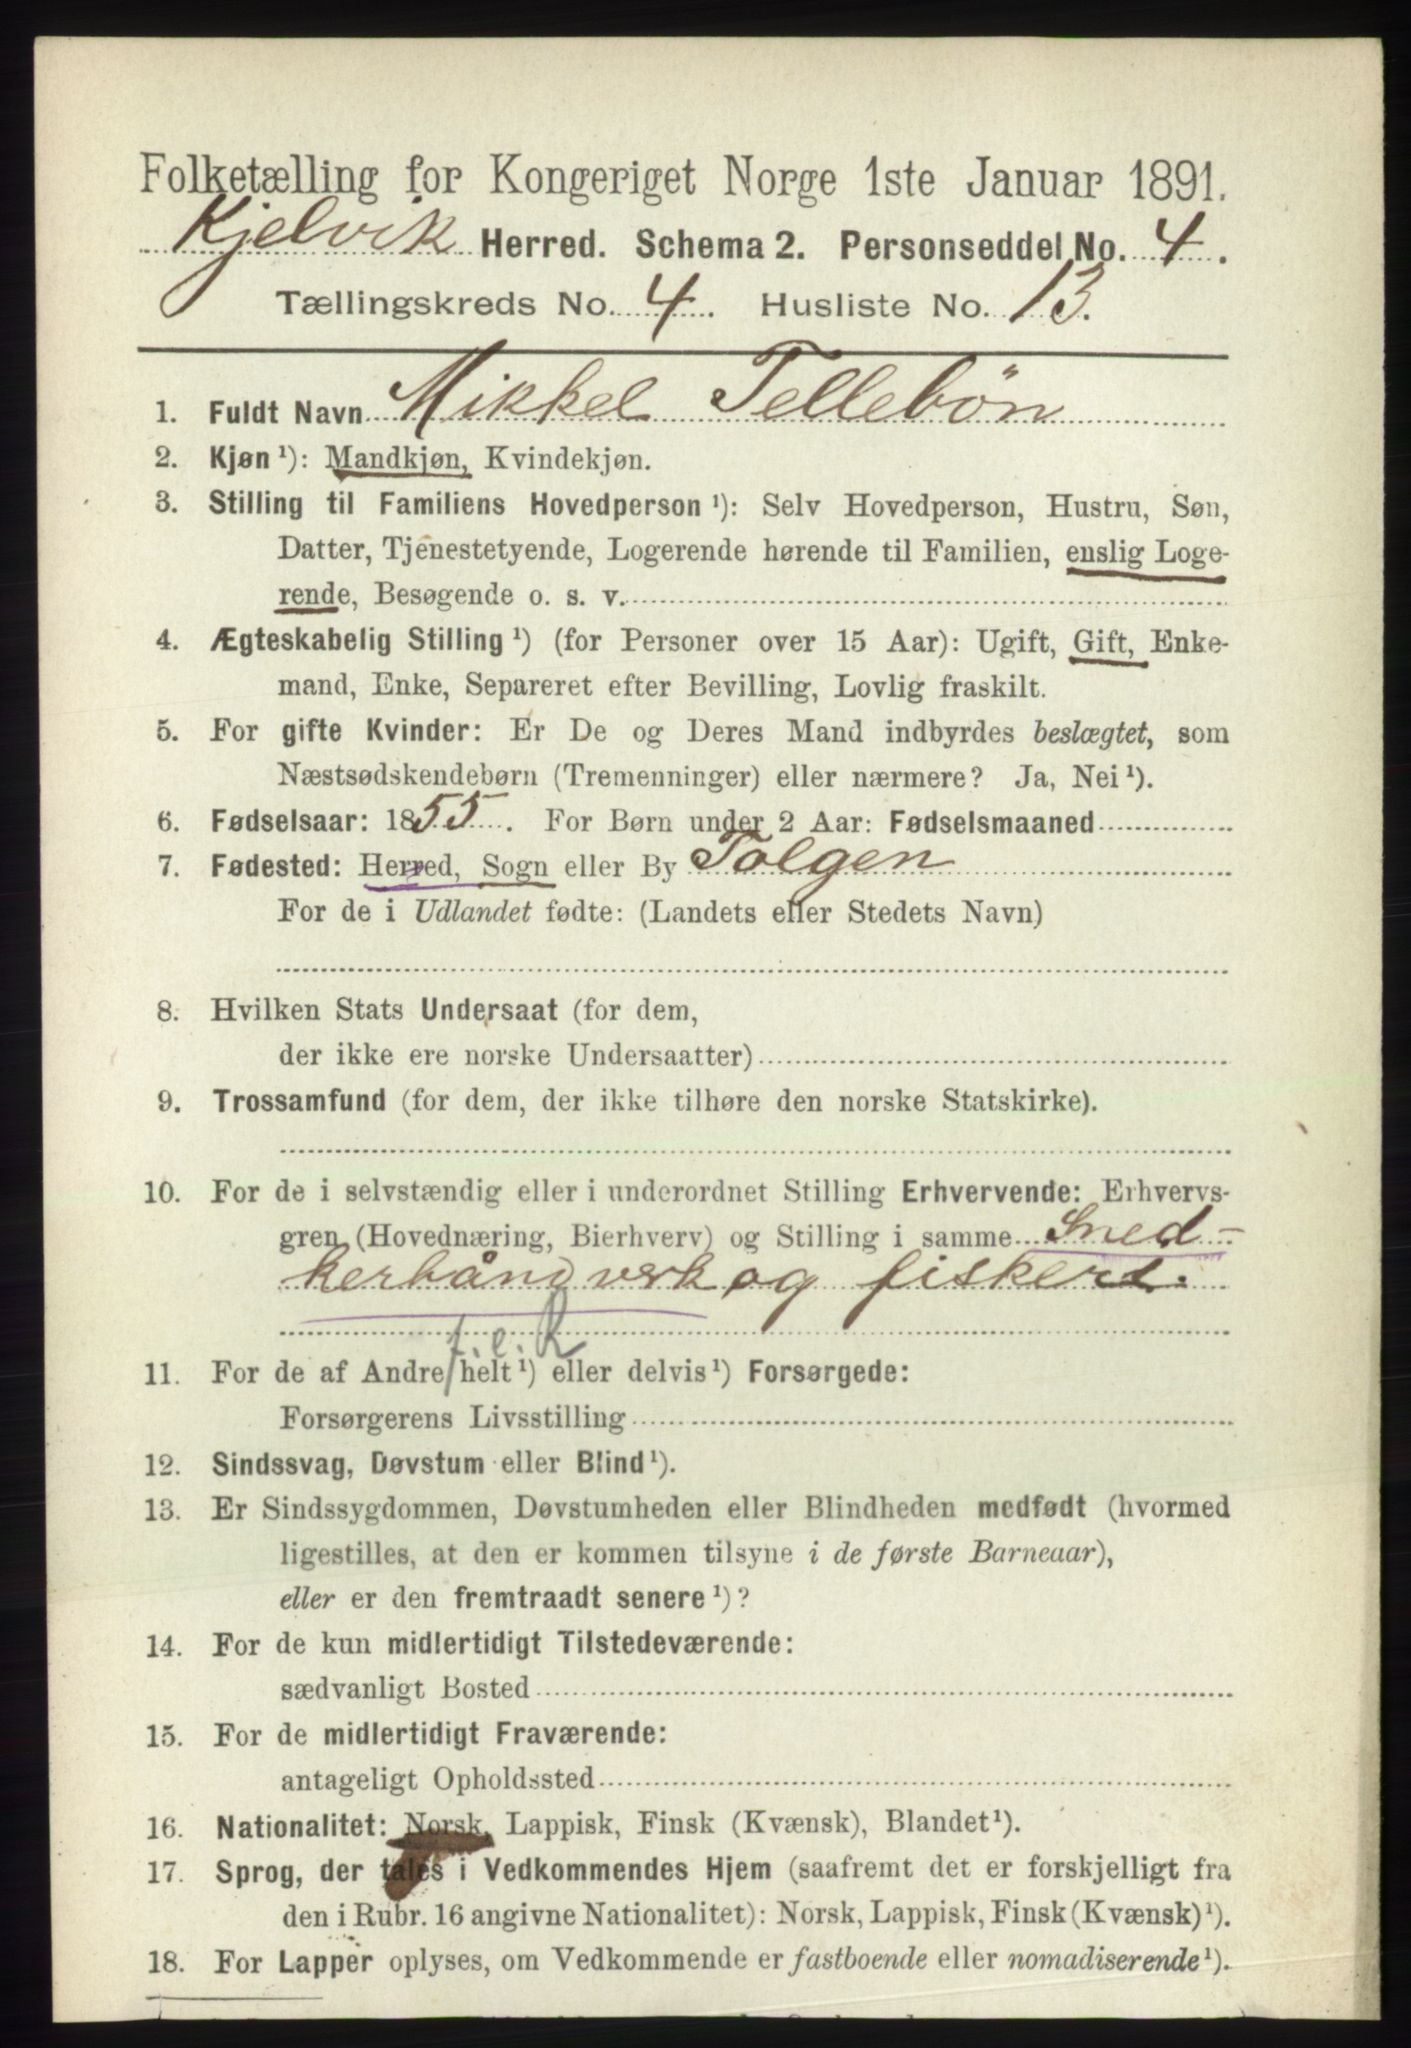 Folketælling for Kongeriget Norge 1ste Januar 1891.
Kjelvik Herred. Schema 2. Personseddel No. 4.
Tællingskreds No. 4. Husliste No. 13.
1. Fuldt Navn Mikkel Tellebön
2. Kjøn ¹): Mandkjøn, Kvindekjøn.
3. Stilling til Familiens Hovedperson ¹): Selv Hovedperson, Hustru, Søn,
Datter, Tjenestetyende, Logerende hørende til Familien, enslig Loge-
rende, Besøgende o. s. v.
4. Ægteskabelig Stilling ¹) (for Personer over 15 Aar): Ugift, Gift, Enke-
mand, Enke, Separeret efter Bevilling, Lovlig fraskilt.
5. For gifte Kvinder: Er De og Deres Mand indbyrdes beslægtet, som
Næstsødskendebørn (Tremenninger) eller nærmere? Ja, Nei ¹).
6. Fødselsaar: 1855. For Børn under 2 Aar: Fødselsmaaned
7. Fødested: Herred, Sogn eller By Tolgen
For de i Udlandet fødte: (Landets eller Stedets Navn)
8. Hvilken Stats Undersaat (for dem,
der ikke ere norske Undersaatter)
9. Trossamfund (for dem, der ikke tilhøre den norske Statskirke).
10. For de i selvstændig eller i underordnet Stilling Erhvervende: Erhvervs-
gren (Hovednæring, Bierhverv) og Stilling i samme Sned-
kerhåndverk og fiskeri.
11. For de af Andre helt ¹) eller delvis ¹) Forsørgede:
Forsørgerens Livsstilling
12. Sindssvag, Døvstum eller Blind ¹).
13. Er Sindssygdommen, Døvstumheden eller Blindheden medfødt (hvormed
ligestilles, at den er kommen tilsyne i de første Barneaar),
eller er den fremtraadt senere ¹)?
14. For de kun midlertidigt Tilstedeværende:
sædvanligt Bosted
15. For de midlertidigt Fraværende:
antageligt Opholdssted
16. Nationalitet: Norsk, Lappisk, Finsk (Kvænsk), Blandet ¹).
17. Sprog, der tales i Vedkommendes Hjem (saafremt det er forskjelligt fra
den i Rubr. 16 angivne Nationalitet): Norsk, Lappisk, Finsk (Kvænsk) ¹).
18. For Lapper oplyses, om Vedkommende er fastboende eller nomadiserende ¹).